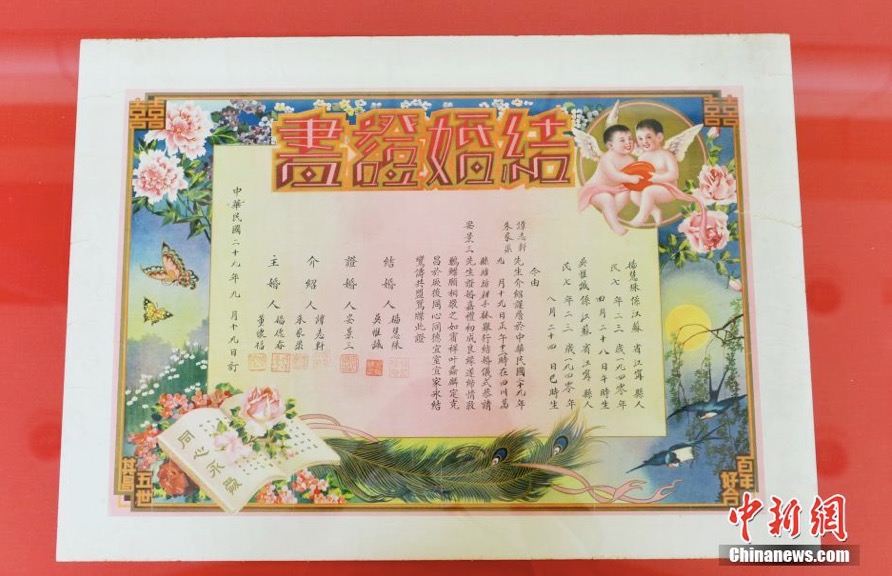 結婚證書
囍
囍
楊慧殊係江蘇省江寧縣人
民七年二三歲一九四零年
四月二十八日午時生
吳惟誠係江蘇省江寧縣人
民七年二三歲一九四零年
八月二十四日巳時生
今由
譚志軒
朱家
先生介紹謹詹於中華民國二十九年
九月十九日正午十二時在四川萬
縣舉行結婚儀式恭請
安景三先生證婚嘉禮初成良緣遂締情敦
鶼鰈願相敬之如賓祥叶螽麟定克
昌於厥後同心同德宜室宜家永結
鸞儔共盟鴛牒此證
結婚人
楊慧殊
吳惟誠
證婚人
安景三
介紹人
譚志軒
朱家
主婚人
楊德春
董懷
中華民國二十九年九月十九日訂
同心永
百年好合
五世其昌
中新網
Chinanews.com